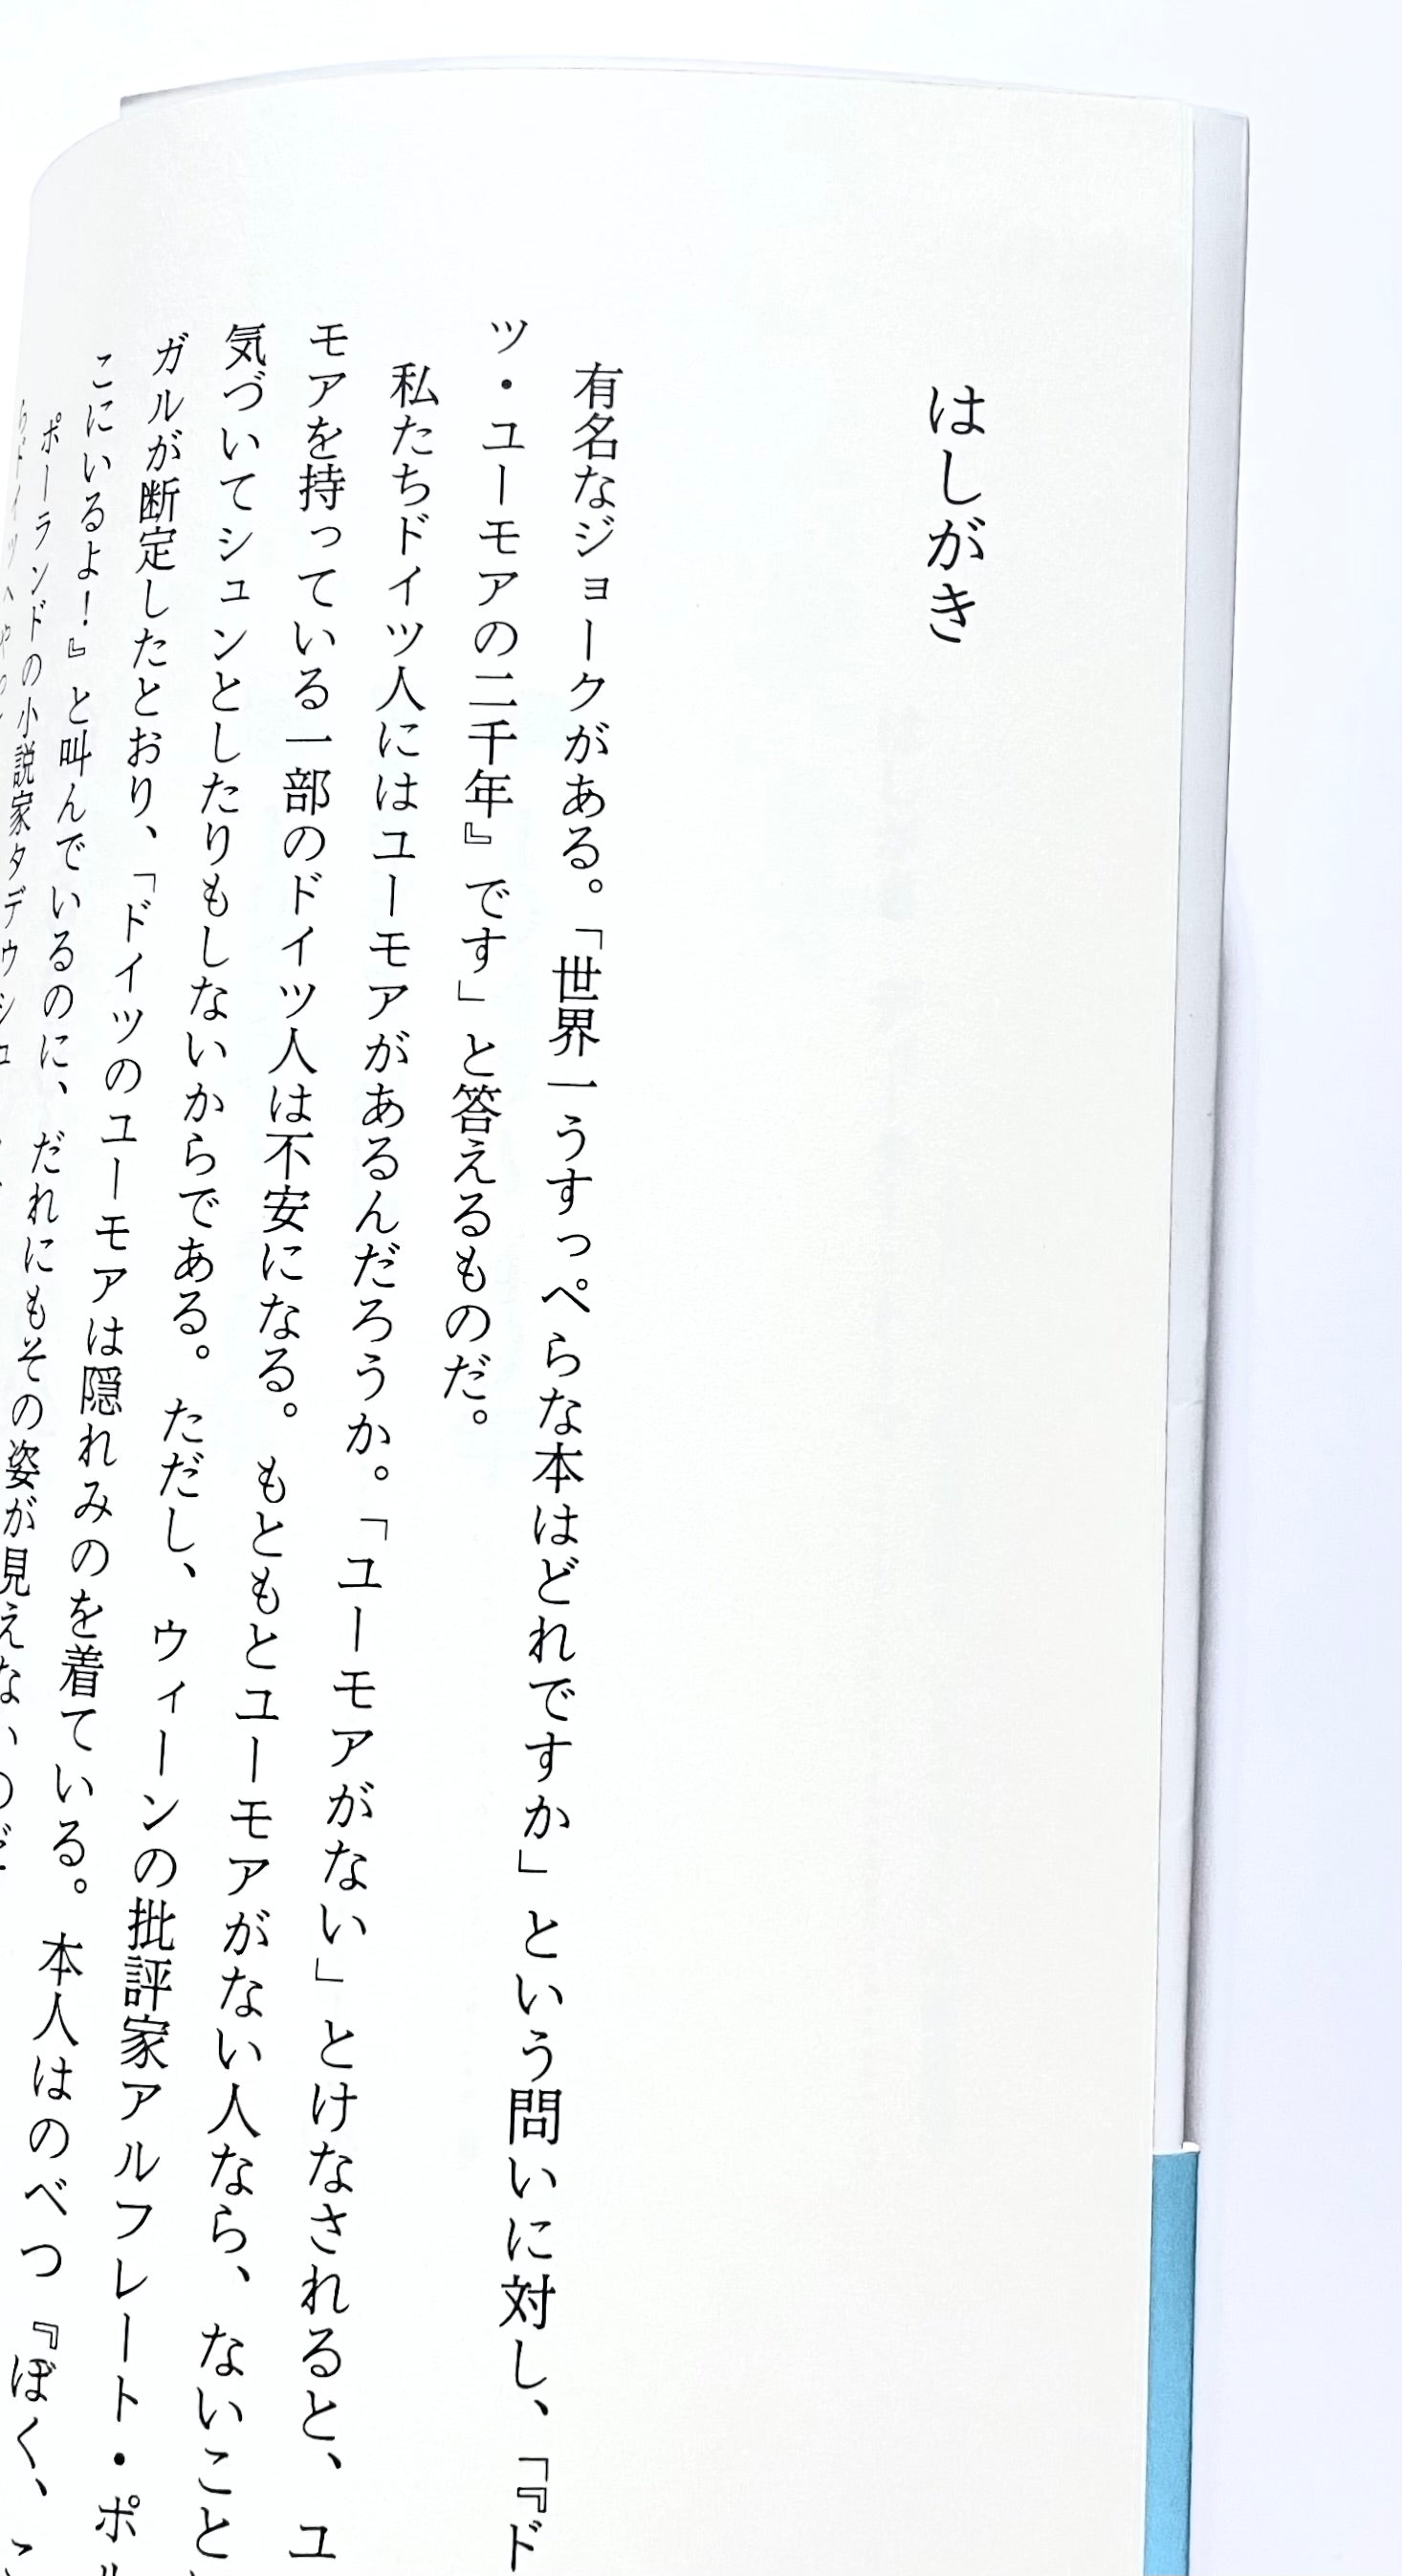 はしがき
有名なジョークがある。「世界一うすっぺらな本はどれですか」という問いに対し、「『ド
ツ・ユーモアの二千年』です」と答えるものだ。
私たちドイツ人にはユーモアがあるんだろうか。「ユーモアがない」とけなされると、ユ
モアを持っている一部のドイツ人は不安になる。もともとユーモアがない人なら、ないこと
気づいてシュンとしたりもしないからである。ただし、ウィーンの批評家アルフレート・ポル
ガルが断定したとおり、「ドイツのユーモアは隠れみのを着ている。本人はのべつ『ぼく、こ
こにいるよ！』と叫んでいるのに、だれにもその姿が見えないのだ
ポーランドの小説家タデウシュ
らドイツへやって